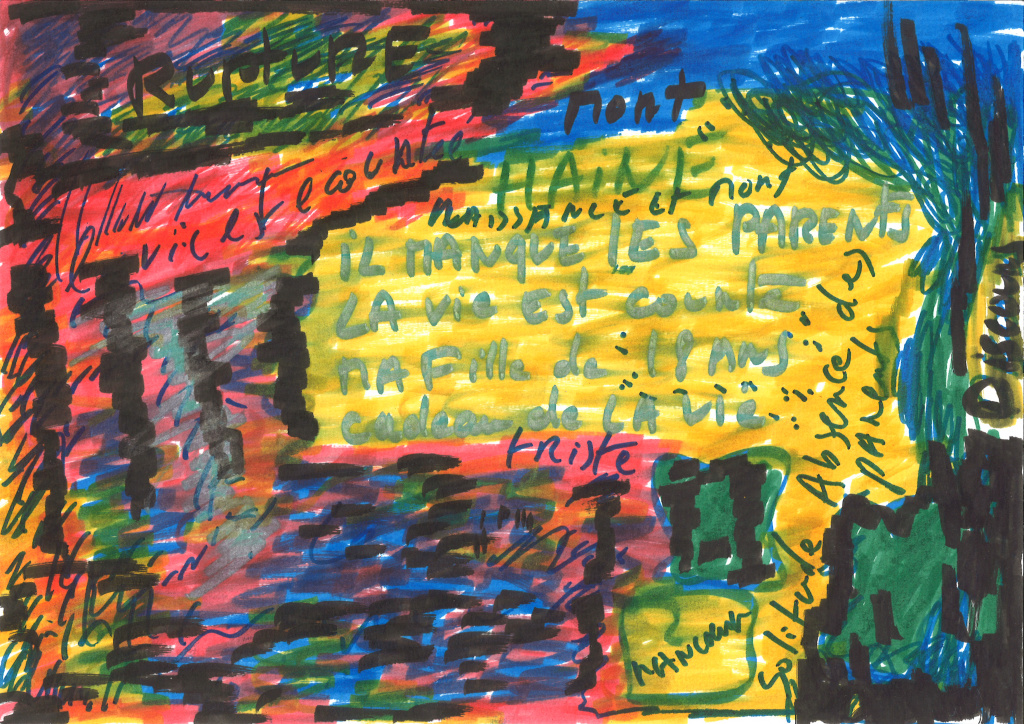 RUPTURE
mort
"HAINE"
vie est écourtée
NAISSANCE et mort
iL MANQUE LES PARENTS
LA vie EST courte
MA Fille de 18 ANS
cadeau de LA ViE
triste
Absence des
parents
Solitude
RANCOEUR